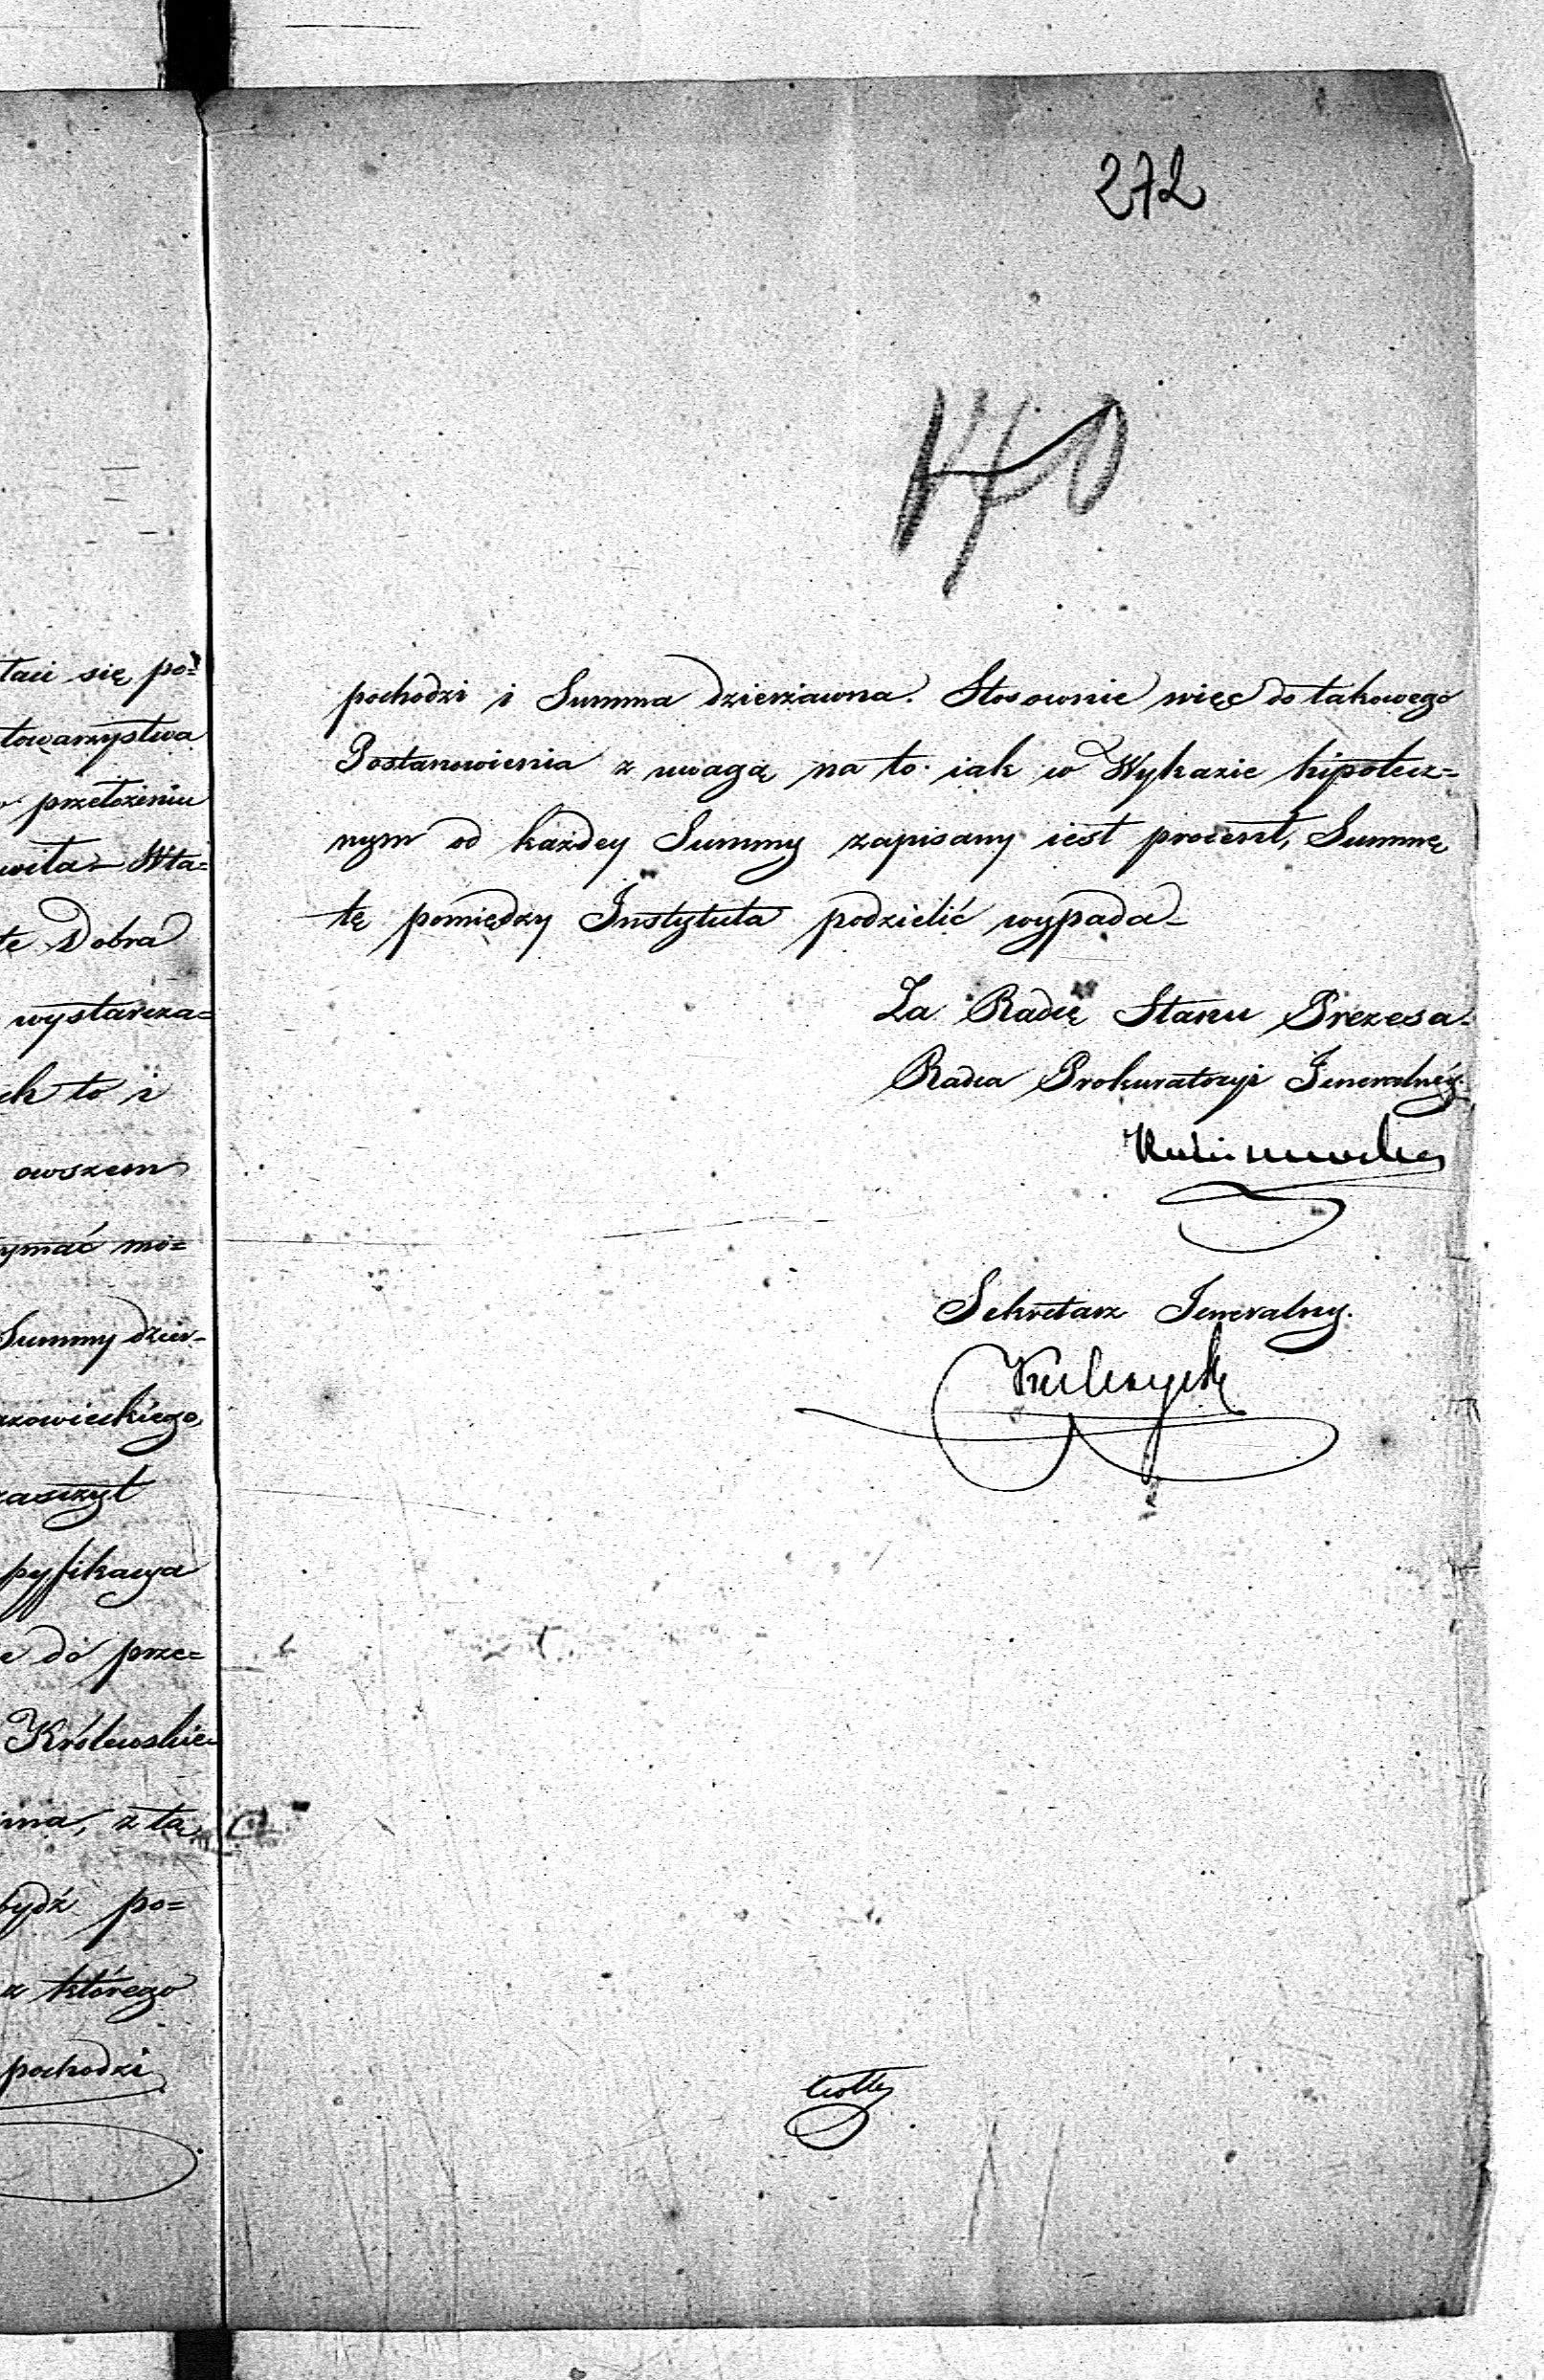 272
170
tait się po=
towarzystwa
przełożeniu
Wła=
te Dobra
wystarcza=
ch to i
owszem
ymać mo=
Summy dzier=
azowieckiego,
zaszczyt
pyfikacya
e do prze=
Królewskie
ma, z tą
bydź po=
z którego
pochodzi
pochodzi i Summa dzierżawna. Stosownie więc do takowego
Postanowienia z uwagą na to iak w Wykazie hipotecz=
nym od każdey Summy zapisany iest procent, Summę
tę pomiędzy Instytuta podzielić wypada
Za Radcę Stanu Prezesa
Radca Prokuratoryi Jeneralnéy.
Sekretarz Jeneralny.
Kulczycki